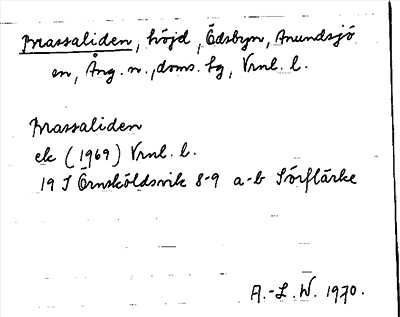 Brassaliden, höjd, Ödsbyn, Anundsjö
sn, Ång. n., doms. hg, Vrnl. l.
Brassaliden
ek (1969) Vrnl. l.
19 I Örnsköldsvik 8-9 a-b Sörflärke
A.-L. W. 1970.